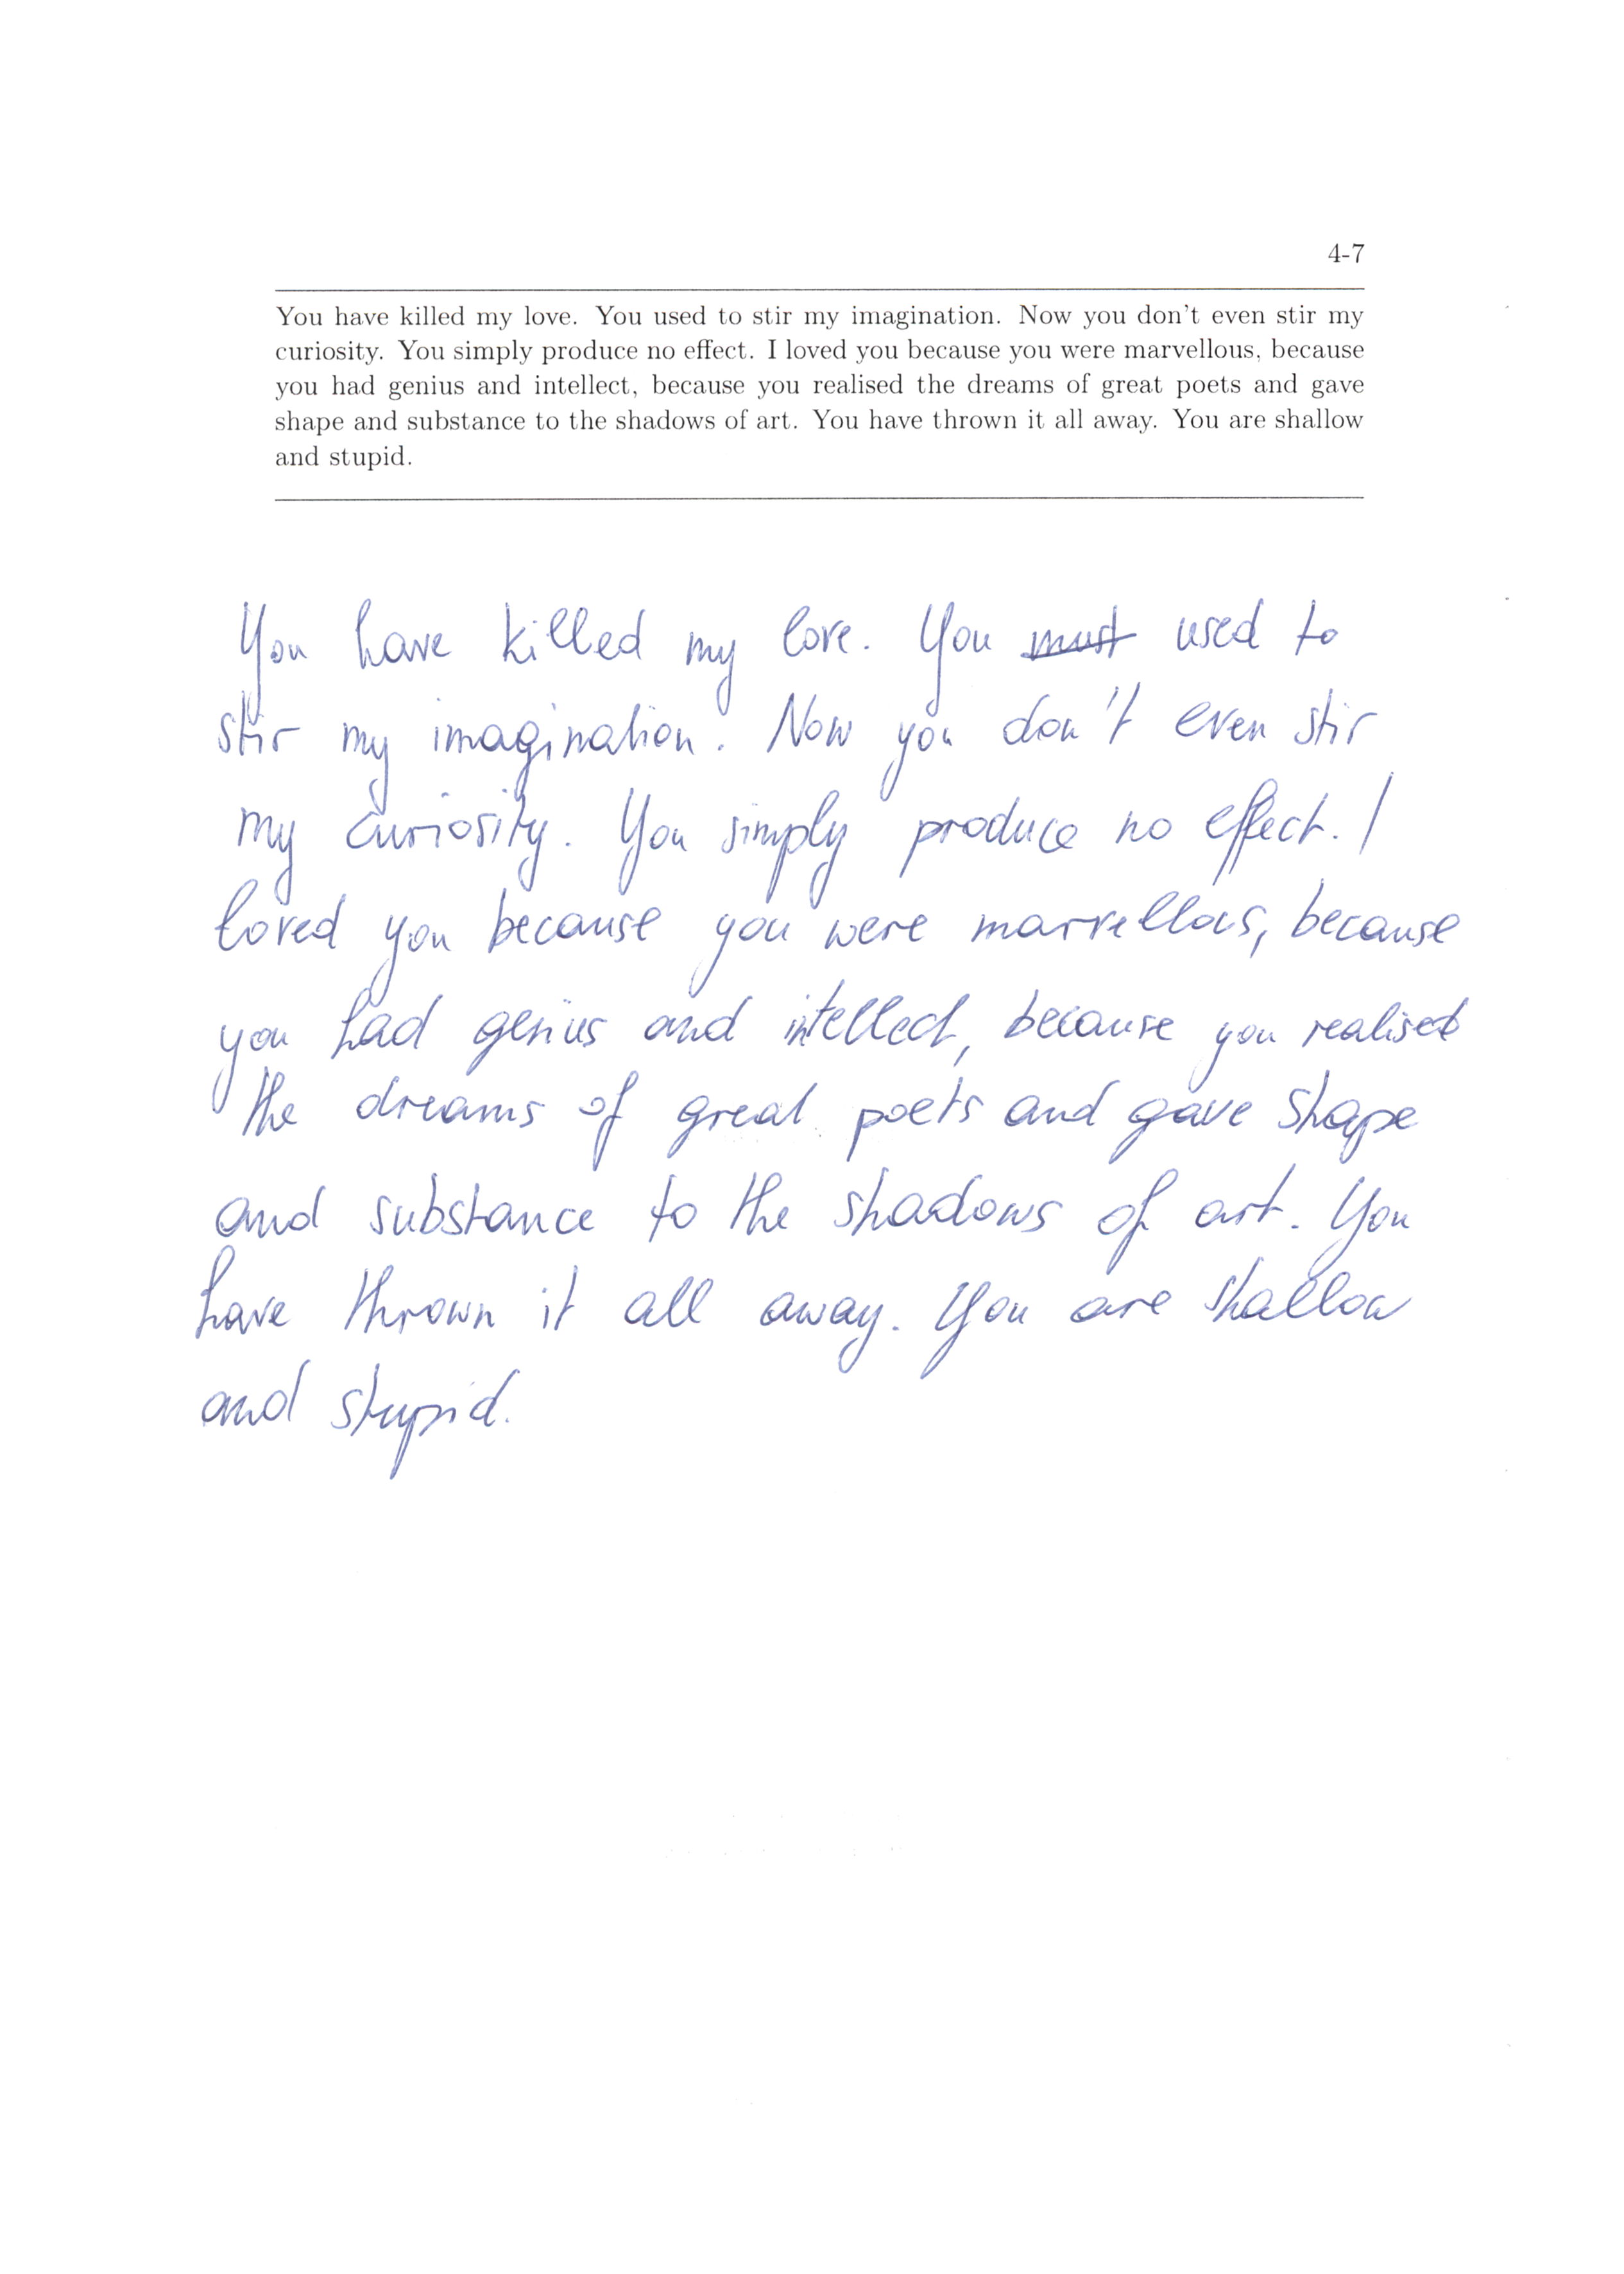 4-7
You have killed my love. You used to stir my imagination. Now you don't even stir my
curiosity. You simply produce no effect. I loved you because you were marvellous, because
you had genius and intellect, because you realised the dreams of great poets and gave
shape and substance to the shadows of art. You have thrown it all away. You are shallow
and stupid.
You have killed my love. You must used to
stir my imagination. Now you don't even stir
my curiosity. You simply produce no effect. I
loved you because you were marvellous, because
you had genius and intellect, because you realised
the dreams of great poets and gave shape
and substance to the shadows of art. You
have thrown it all away. You are shallow
and stupid.